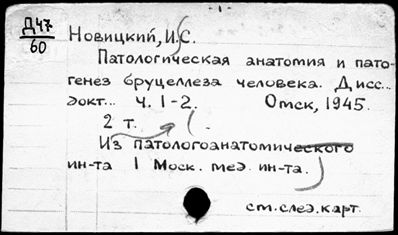 Д47
60
Новицкий, И.С.
Патологическая анатомия и пато-
генез бруцеллеза человека. Дисс...
докт... Ч. 1-2. Омск, 1945.
2 т. (.
Из патологоанатомического
ин-та 1 Моск. мед. ин-та.)
см. след. карт.